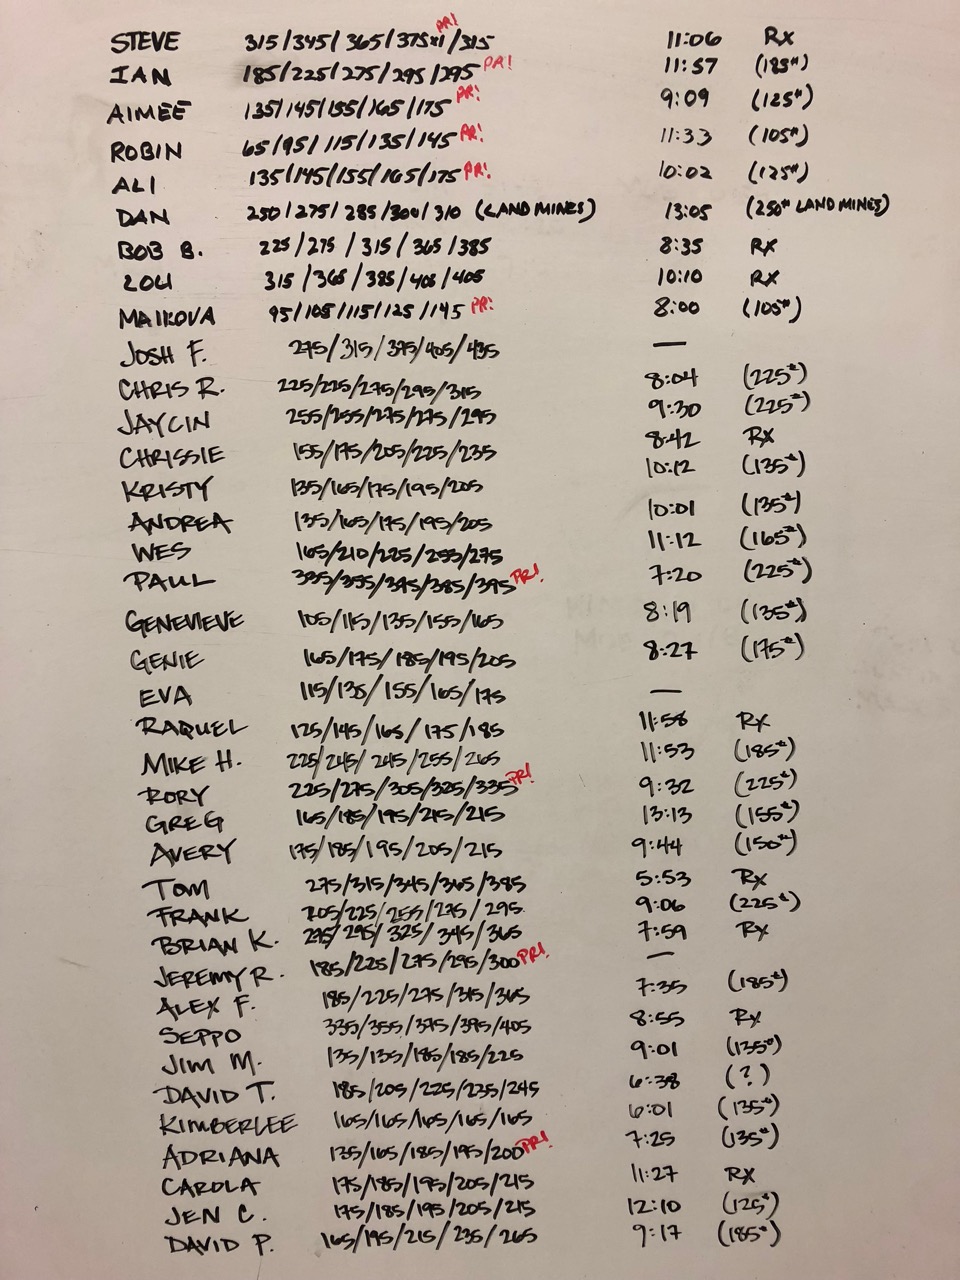 STEVE 315/345/365/375x1/315 PR! 11:06 Rx
IAN 185/225/275/295/295 PR! 11:57 (185#)
AIMEE 135/145/155/165/175 PR! 9:09 (125#)
ROBIN 65/95/115/135/145 PR! 11:33 (105#)
ALI 135/145/155/165/175 PR! 10:02 (125#)
DAN 250/275/285/300/310 (LAND MINES) 13:05 (250# LAND MINES)
BOB B. 225/275/315/365/385 8:35 Rx
LOU 315/365/385/405/405 10:10 Rx
MAIKOVA 95/105/115/125/145 PR! 8:00 (105#)
JOSH F. 275/315/375/405/435 —
CHRIS R. 225/225/275/295/315 8:04 (225#)
JAYCIN 255/255/275/275/295 9:30 (225#)
CHRISSIE 155/175/205/225/235 8:42 Rx
KRISTY 135/165/175/195/205 10:12 (135#)
ANDREA 135/165/175/195/205 10:01 (135#)
WES 165/210/225/255/275 11:12 (165#)
PAUL 335/355/375/385/395 PR! 7:20 (225#)
GENEVIEVE 105/115/135/155/165 8:19 (135#)
GENIE 165/175/185/195/205 8:27 (175#)
EVA 115/135/155/165/175 —
RAQUEL 125/145/165/175/185 11:58 Rx
MIKE H. 225/245/245/255/265 11:53 (185#)
RORY 225/275/305/325/335 PR! 9:32 (225#)
GREG 165/185/195/215/215 13:13 (155#)
AVERY 175/185/195/205/215 9:44 (150#)
TOM 275/315/345/365/385 5:53 Rx
FRANK 205/225/255/275/295 9:06 (225#)
BRIAN K. 275/295/325/345/365 7:59 Rx
JEREMY R. 185/225/275/295/300 PR! —
ALEX F. 185/225/275/315/365 7:35 (185#)
SEPPO 335/355/375/395/405 8:55 Rx
JIM M. 135/135/185/185/225 9:01 (135#)
DAVID T. 185/205/225/235/245 6:38 (?)
KIMBERLEE 165/165/165/165/165 6:01 (135#)
ADRIANA 135/165/185/195/200 PR! 7:25 (135#)
CAROLA 175/185/195/205/215 11:27 Rx
JEN C. 175/185/195/205/215 12:10 (125#)
DAVID P. 165/195/215/235/265 9:17 (185#)